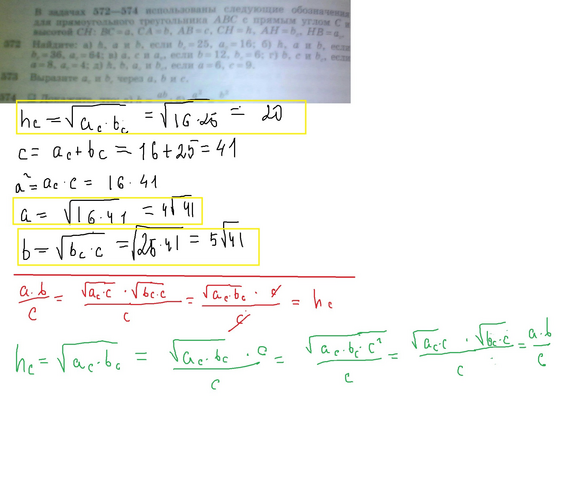 В задачах 572—574 использованы следующие обозначения
для прямоугольного треугольника ABC с прямым углом C и
высотой CH: BC=a, CA=b, AB=c, CH=h, AH=b_c, HB=a_c.
572 Найдите: а) h, a и b, если b_c=25, a_c=16; б) h, a и b, если
b_c=36, a_c=64; в) a, c и a_c, если b=12, b_c=6; г) b, c и b_c, если
a=8, a_c=4; д) h, b, a_c и b_c, если a=6, c=9.
573 Выразите a_c и b_c через a, b и c.
h_c = √(a_c·b_c) = √(16·25) = 20
c = a_c+b_c = 16+25=41
a²= a_c·c = 16·41
a= √(16·41) = 4√41
b=√(b_c·c) =√(25·41) = 5√41
a·b/c = √(a_c·c)·√(b_c·c)/c = √(a_c·b_c)·c/c = h_c
h_c=√(a_c·b_c) = √(a_c·b_c)·c/c = √(a_c·b_c·c²)/c = √(a_c·c)·√(b_c·c)/c = a·b/c